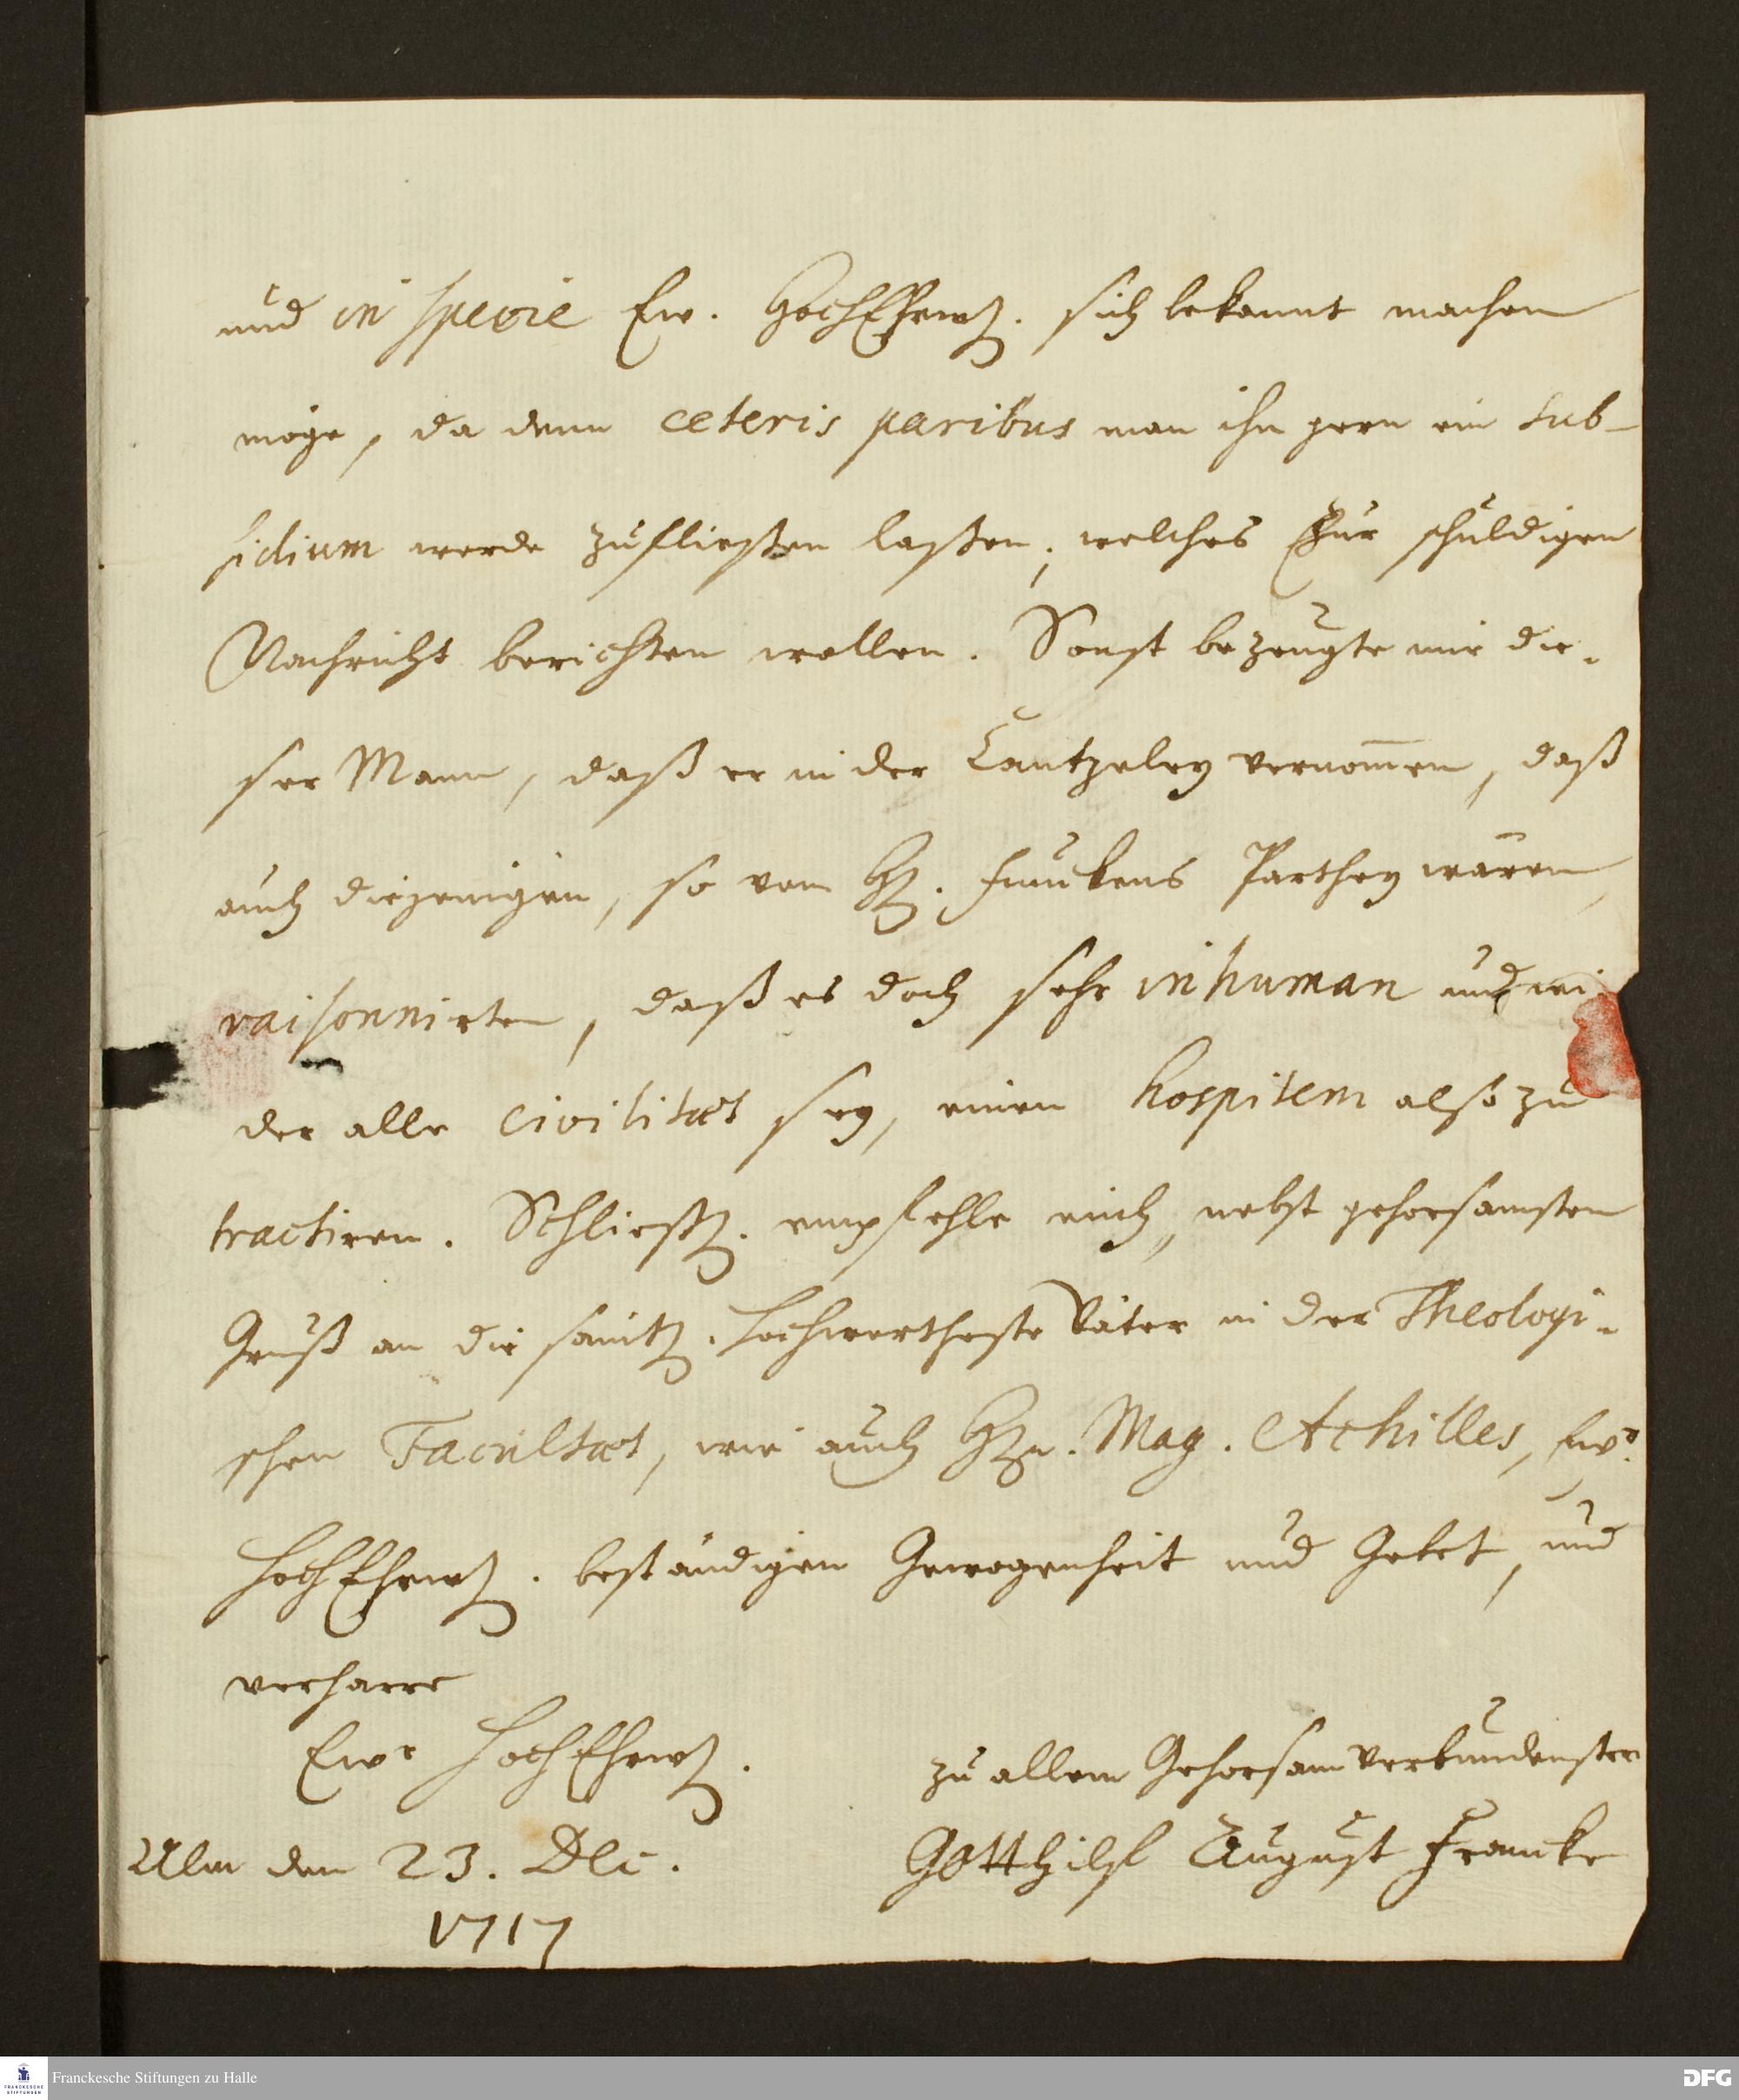 und in specie Ew. HochEhrwh. sich bekannt machen
möge, da denn ceteris paribus man ihn gern ein sub-
sidium werde zufließen laßen, welches zur schuldigen
Nachricht berichten wollen. Sonst bezeugte mir die-
ser Mann, daß er in der Cantzeley vernom̄en, daß
auch diejenigen, so von H. Funckens Parthey wären,
raisonnirten, daß es doch sehr inhuman und wi
der alle civilitæt sey, einen hospitem also zu
tractiren. Schließl. empfehle mich, nebst gehorsamsten
Gruß an die sämtl. hochwertheste Väter in der Theologi-
schen Facultæt, wie auch Hrn. Mag. Achilles, Ewr.
HochEhrwh. beständigen Gewogenheit und Gebet, und
verharre
Ewr HochEhrwh.
zu allem Gehorsam verbundenster
Ulm den 23. Dec.
Gotthilf August Francke
1717
Franckesche Stiftungen zu Halle
FRANCKESCHE
STIFTUNGEN
DFG